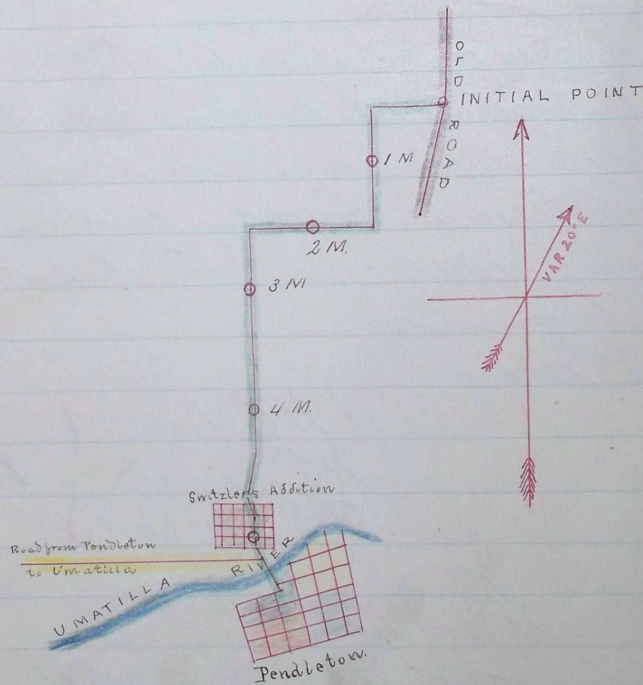 OLD ROAD
INITIAL POINT
1 M
2 M.
VAR 20° E
3 M
4 M.
Switzler's Addition
Road from Pendleton
to Umatilla
UMATILLA RIVER
Pendleton.